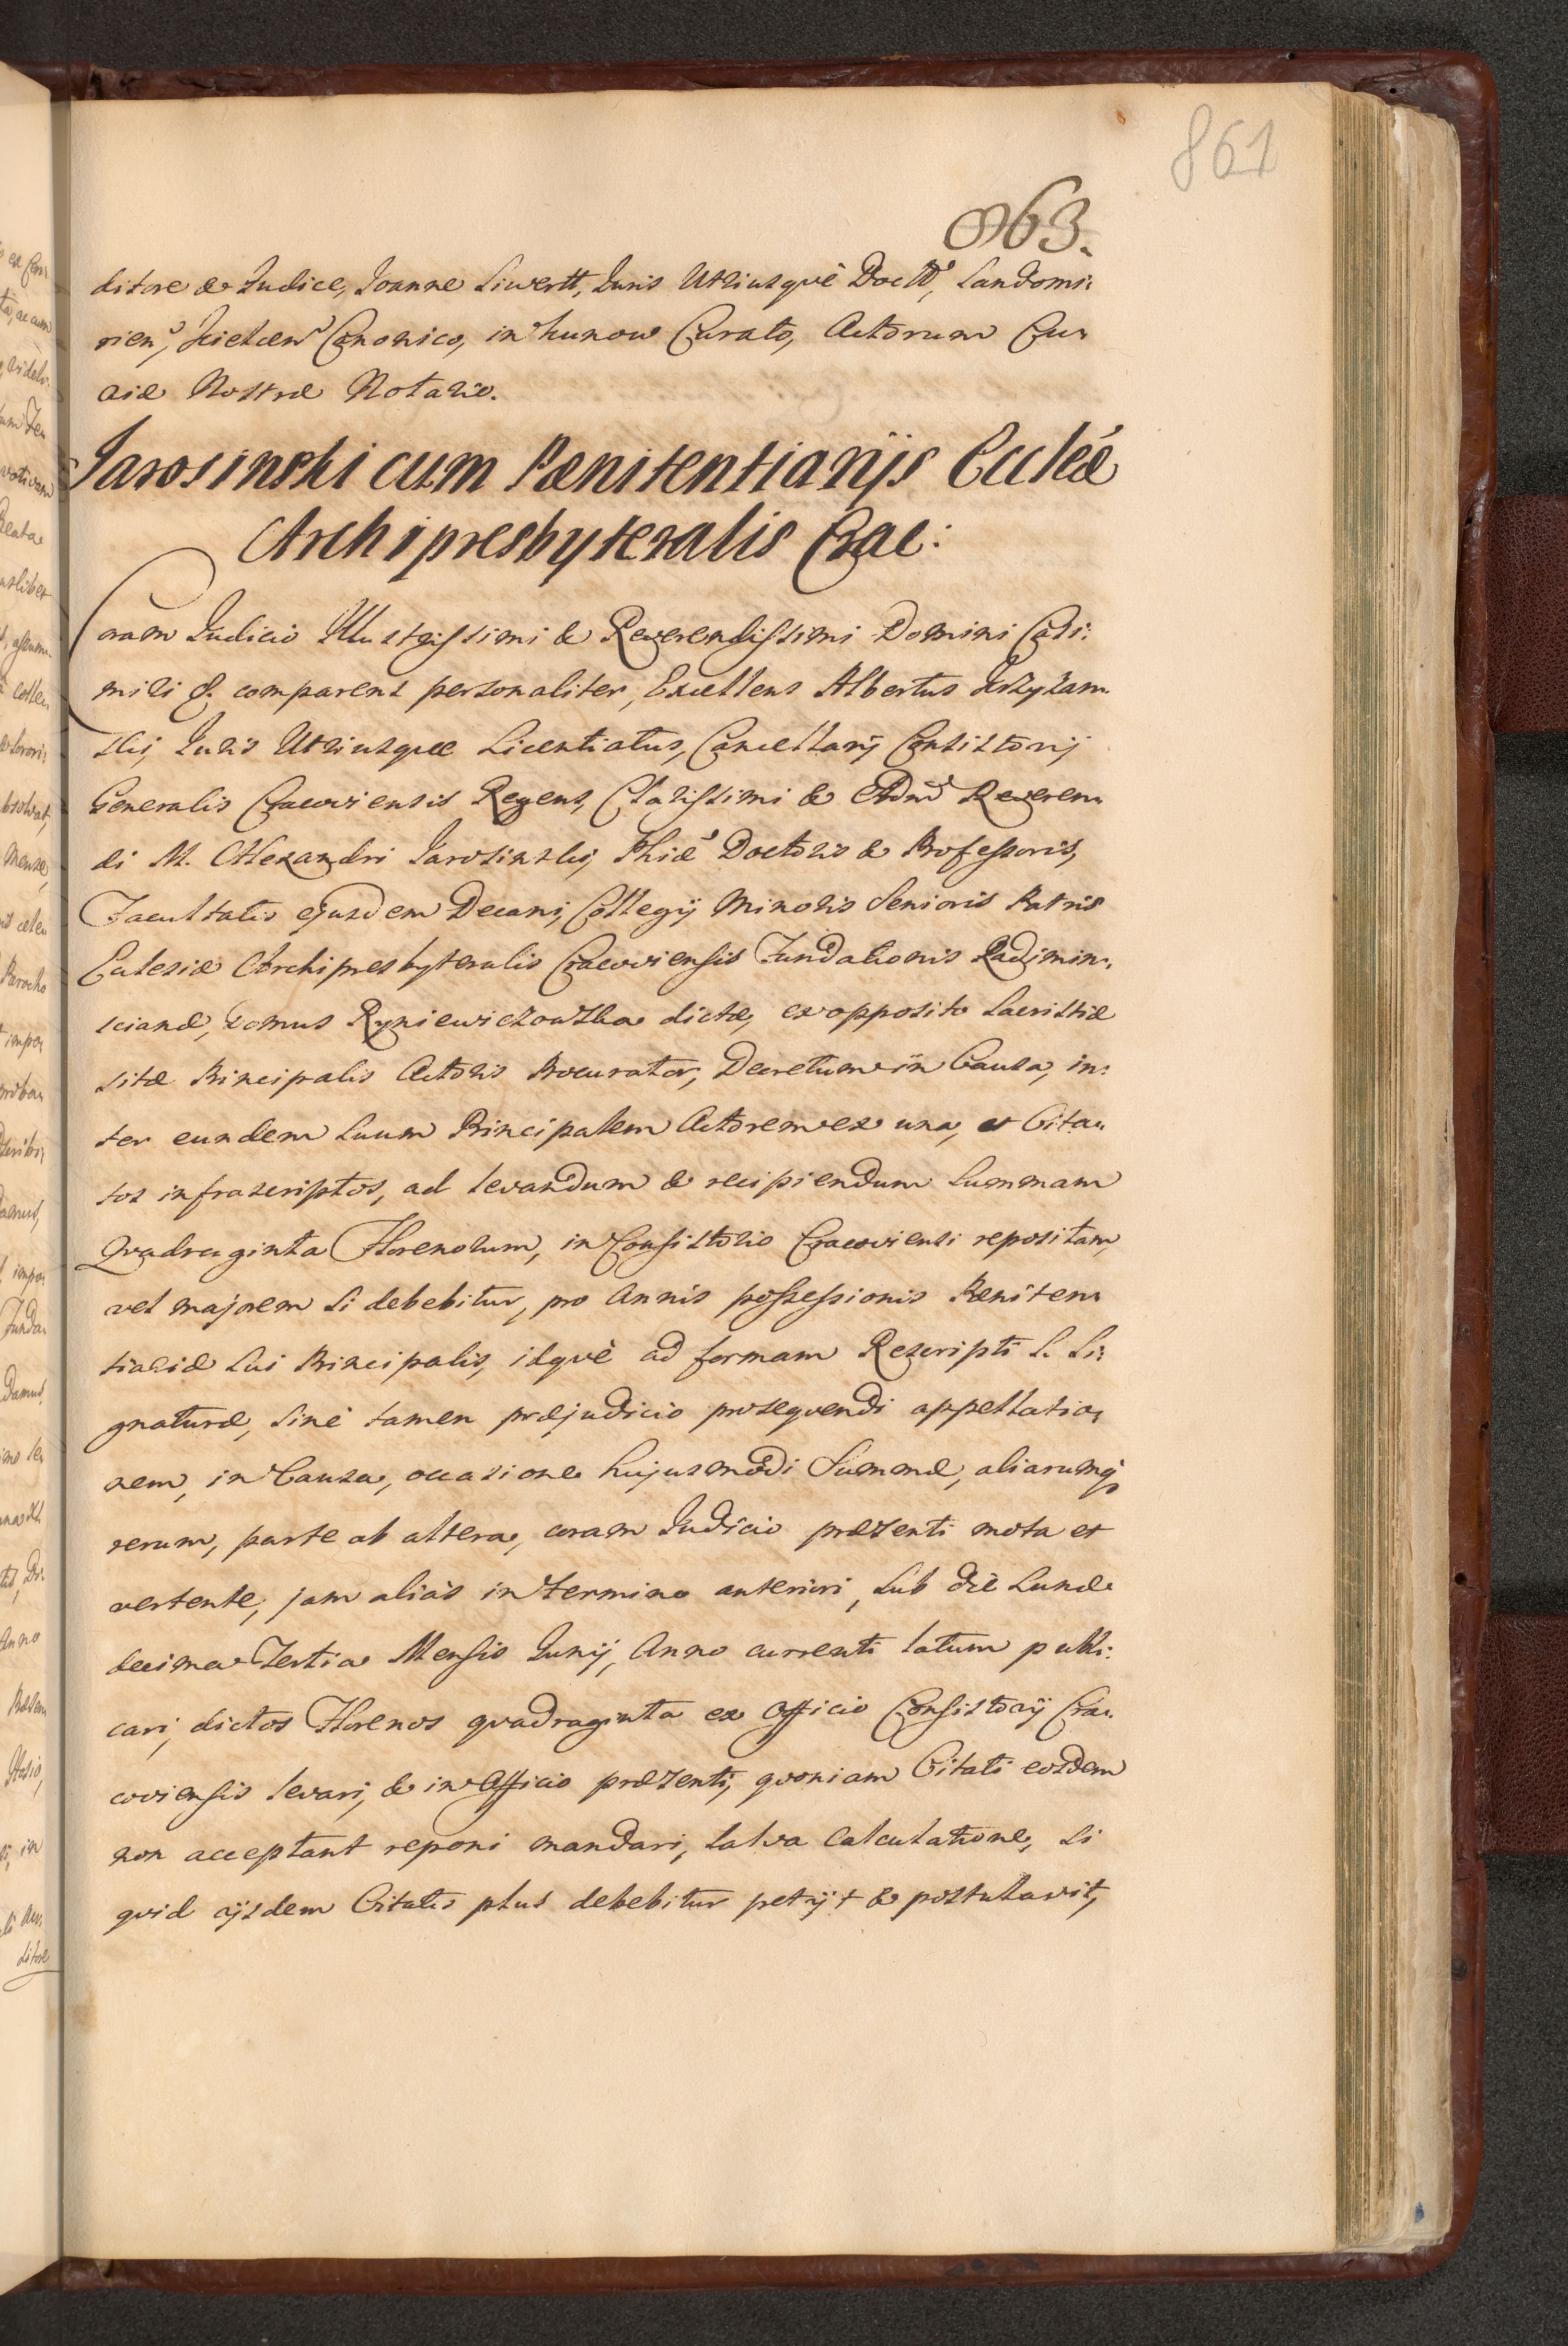 861
863.
ditore & Judice, Joanne Siwertt, Juris Utriusquè Doctr̃e, Sandomi:
rien̾, Kielcen̾ Canonico, in Kunow Curato, Actorum Cu:
riæ Nostræ Notario.
Jarosinski cum Pænitentiarijs Ecclæ
Archipresbyteralis Crac:
Coram Judicio Illustrissimi & Reverendissimi Domini Casi:
miri &. comparens personaliter, Excellens Albertus Krzyżam
ski, Juris Utriusque Licentiatus, Cancellarij Consistorij
Generalis Cracoviensis Regens, Clarissimi & Admd̃ Reveren:
di M. Alexandri Jarosinski, Phiæ Doctoris & Professoris,
Facultatis ejusdem Decani, Collegij Minoris Senioris Patris
Eclesiæ Archipresbyteralis Cracoviensis Fundationis Radimin:
scianæ, Domus Ryniewiczowska dictæ, ex opposito Sacristiæ
sitæ Principalis Actoris Procurator, Decretum in Causa, in:
ter eundem Suum Principalem Actorem ex una, et Cita:
tos infrascriptos, ad levandum & recipiendum Summam
Quadraginta Florenorum, in Consistorio Cracoviensi repositam,
vel majorem si debebitur, pro Annis possessionis Pæniten:
tiariæ Sui Principalis, idquè ad formam Rescripti S. Si:
gnaturæ, sinè tamen præjudicio prosequendi appellatio:
nem, in Causa, occasione hujusmodi Summæ, aliarumq̃
rerum, parte ab altera, coram Judicio præsenti mota et
vertente, jam aliàs in termino anteriori, sub diè Lunæ
decima Tertia Mensis Junij, Anno currenti latum publi:
cari, dictos Florenos quadraginta ex Officio Consistorij Cra:
coviensis levari, & in Officio præsenti, quoniam Citati eosdem
non acceptant reponi mandari, salva Calculatione, si
quid ijsdem Citatis plus debebitur petijt & postulavit,